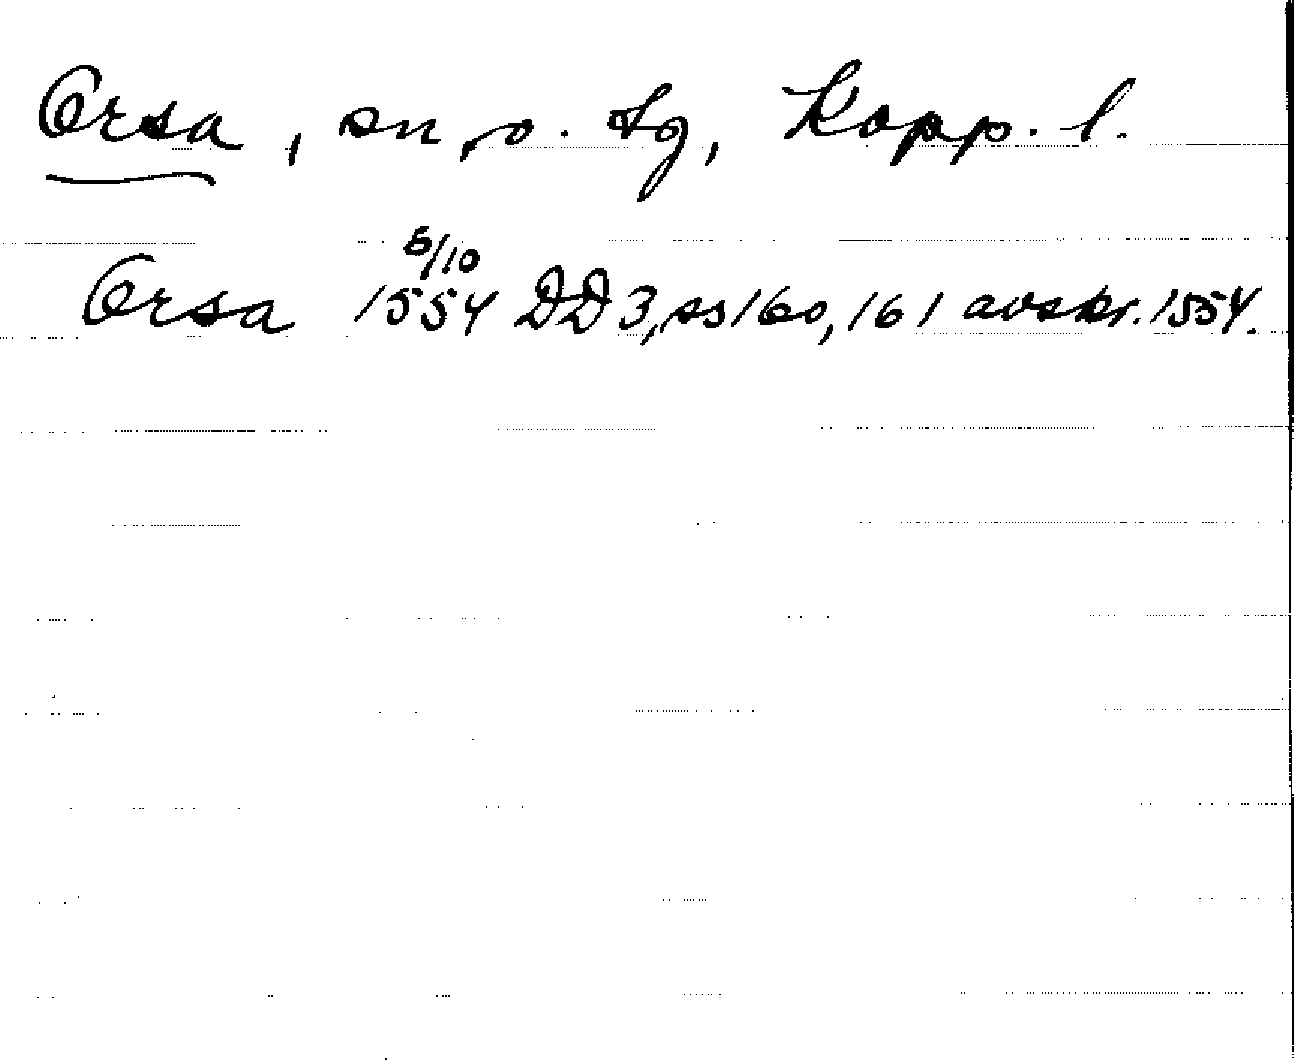 Orsa, sn, o. tg, Kopp. l.
5/10
Orsa 1554 DD 3, ss 160, 161 avskr. 1554.